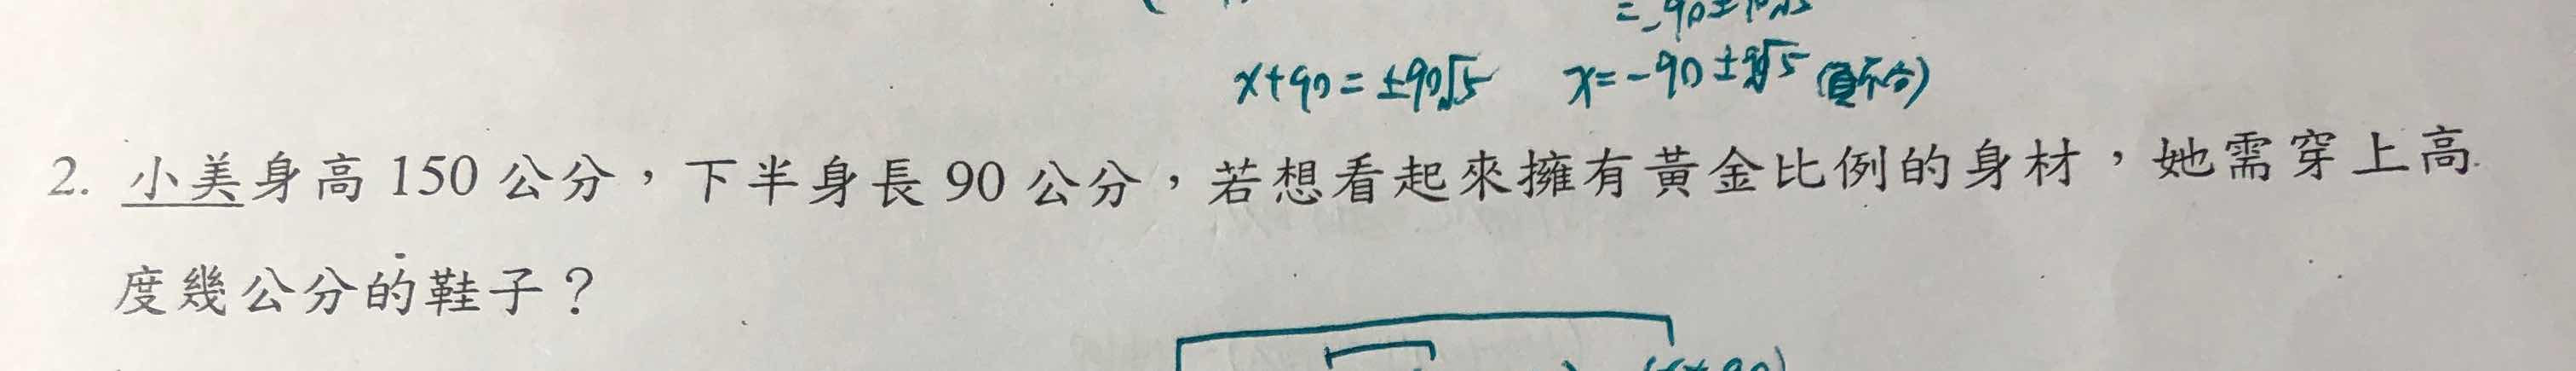 x+90=±90√5 x=-90±90√5 (負不合)
2. 小美身高 150 公分，下半身長 90 公分，若想看起來擁有黃金比例的身材，她需穿上高
度幾公分的鞋子？